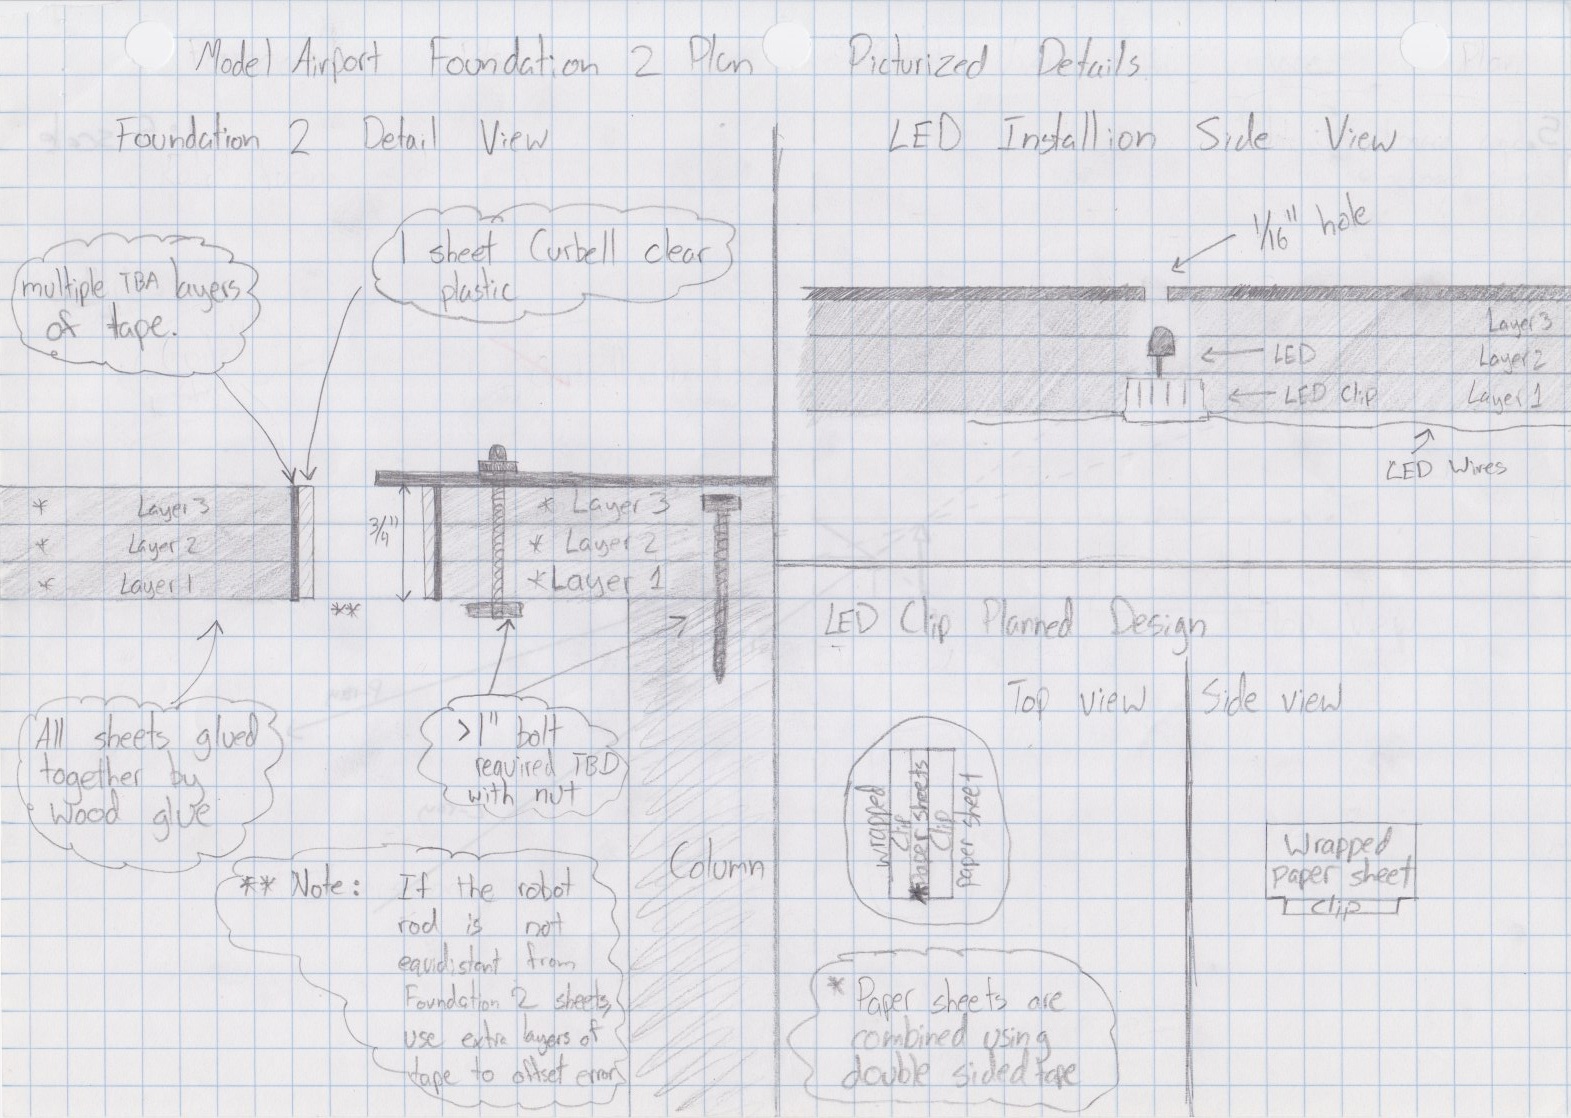 Model Airport Foundation 2 Plan Picturized Details
Foundation 2 Detail View
multiple TBA layers
of tape.
1 sheet Curbell clear
plastic
* Layer 3
* Layer 2
* Layer 1
3/4"
* Layer 3
* Layer 2
* Layer 1
**
All sheets glued
together by
Wood glue
>1" bolt
required TBD
with nut
Column
** Note: If the robot
rod is not
equidistant from
Foundation 2 sheets,
use extra layers of
tape to offset error
LED Installion Side View
1/16" hole
Layer 3
LED
Layer 2
LED Clip
Layer 1
LED Wires
LED Clip Planned Design
Top view
wrapped
clip
*Paper sheets
clip
paper sheet
* Paper sheets are
combined using
double sided tape
Side view
Wrapped
paper sheet
clip